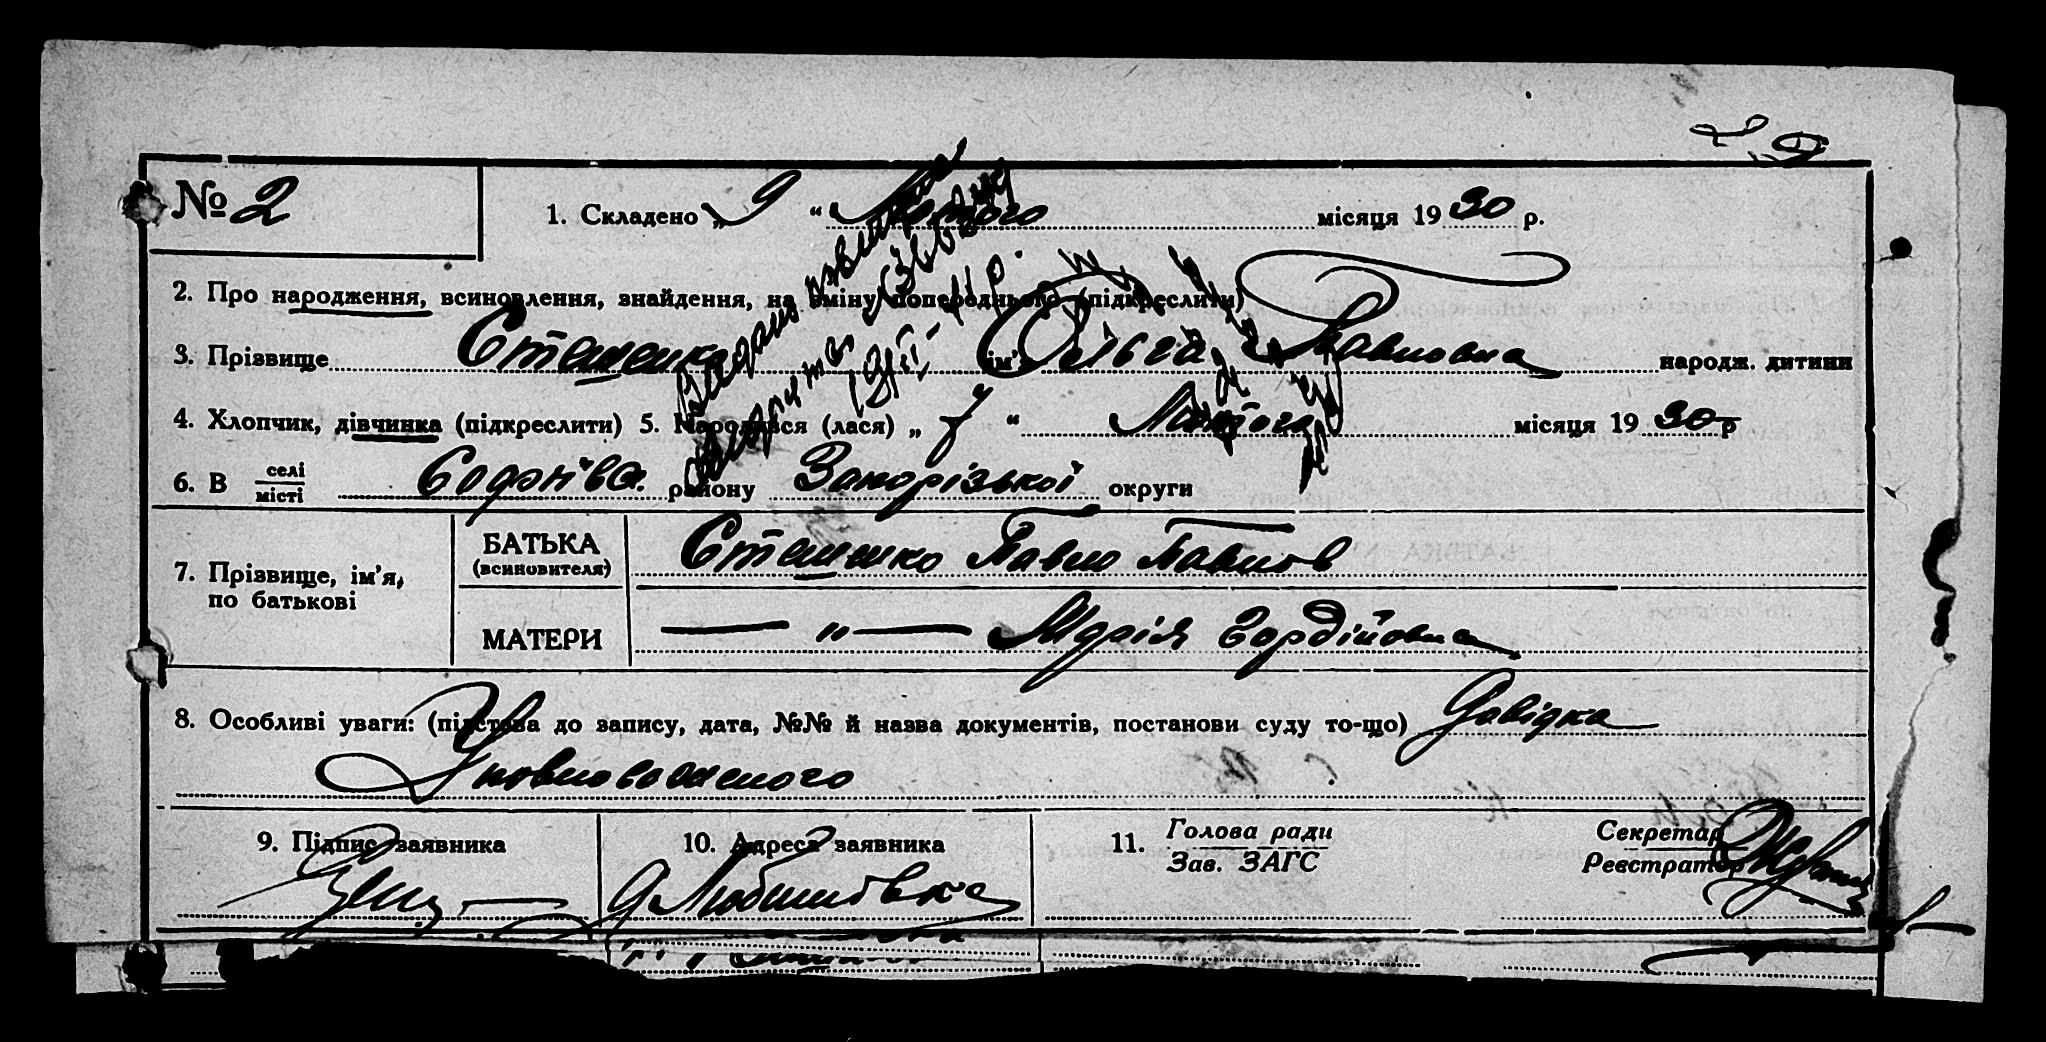 № 2
1. Складено „ 9 “ Лютого місяця 1930 р.
2. Про народження, всиновлення, знайдення, на зміну попереднього (підкреслити)
3. Прізвище Стешенко ім'я Ольга Павловна народж. дитини
4. Хлопчик, дівчинка (підкреслити) 5. Народився (лася) „ 7 “ Лютого місяця 1930 р
6. В селі місті району Запорізької округи
7. Прізвище, ім'я, по батькові
БАТЬКА (всиновителя) Стешенко Павло Павлов
МАТЕРИ — „ — Марія Гордійовна
8. Особливі уваги: (підстава до запису, дата, №№ й назва документів, постанови суду то-що) Довідка
Уповноваженого
9. Підпис заявника 10. Адреса заявника 11. Голова ради Зав. ЗАГС Секретар Реєстратор
Любимовка